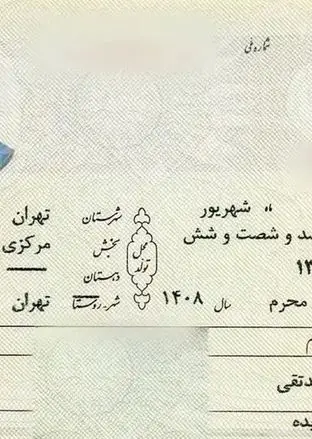 شماره ملی
〃 شهریور شهرستان تهران
صد و شصت و شش بخش مرکزی
محل تولد
۱۳ دهستان
محرم سال ۱۴۰۸ شهر-روستا تهران
م
دتقی
یده